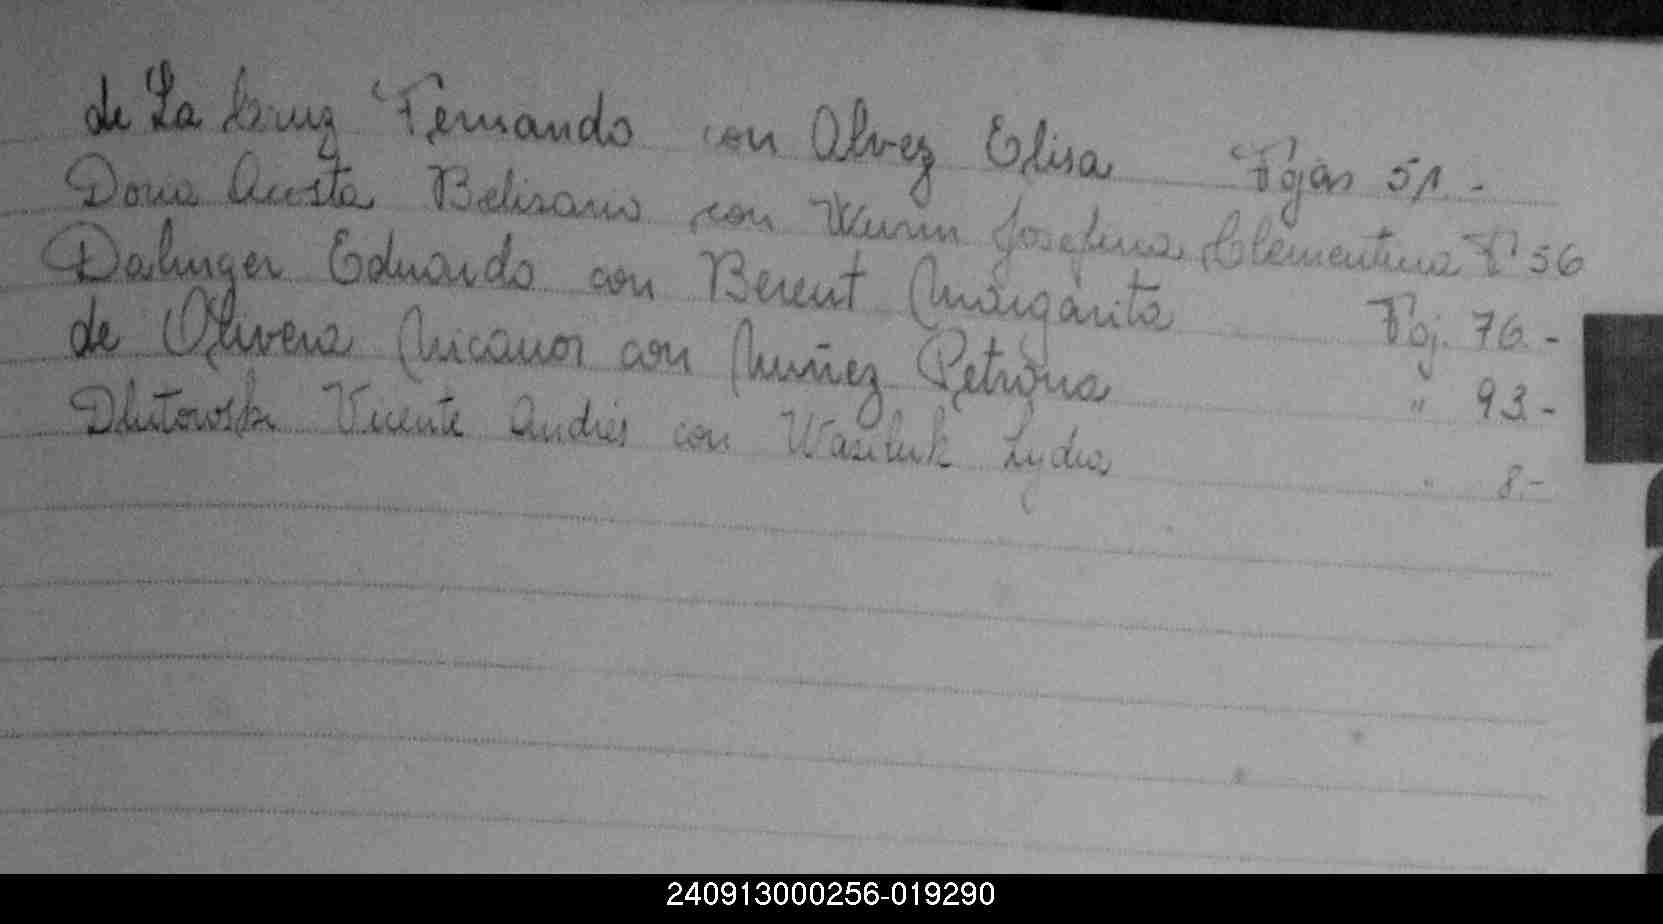 de La Cruz Fernando con Alvez Elisa Fojas 51.-
Doria Acosta Belisario con Wurm Josefina Clementina Fº 56
Dalinger Eduardo con Berent Margarita Foj. 76.-
de Olivera Nicanor con Nuñez Petrona " 93.-
Dlutowski Vicente Andrés con Wasiluk Lydia " 8.-
240913000256-019290